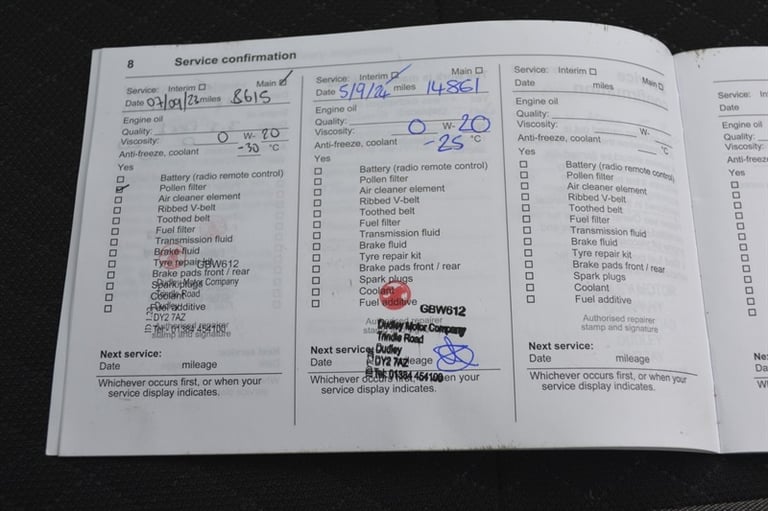 8 Service confirmation
Service: Interim Main
Date 07/09/23 miles 8615
Engine oil
Quality:
Viscosity: 0 W- 20
Anti-freeze, coolant -30 °C
Yes
Battery (radio remote control)
Pollen filter
Air cleaner element
Ribbed V-belt
Toothed belt
Fuel filter
Transmission fluid
Brake fluid
Tyre repair kit
GBW612
Brake pads front / rear
Dudley Motor Company
Spark plugs
Trindle Road
Coolant
Dudley
Fuel additive
DY2 7AZ
Tel: 01384 454100
Authorised repairer
stamp and signature
Next service:
Date mileage
Whichever occurs first, or when your
service display indicates.
Service: Interim Main
Date 5/9/24 miles 14861
Engine oil
Quality:
Viscosity: 0 W- 20
Anti-freeze, coolant -25 °C
Yes
Battery (radio remote control)
Pollen filter
Air cleaner element
Ribbed V-belt
Toothed belt
Fuel filter
Transmission fluid
Brake fluid
Tyre repair kit
Brake pads front / rear
Spark plugs
Coolant
Fuel additive
GBW612
Authorised repairer
Dudley Motor Company
Trindle Road
Dudley
DY2 7AZ
Tel: 01384 454100
Next service:
Date mileage
Whichever occurs first, or when your
service display indicates.
Service: Interim Main
Date miles
Engine oil
Quality:
Viscosity: W-
Anti-freeze, coolant °C
Yes
Battery (radio remote control)
Pollen filter
Air cleaner element
Ribbed V-belt
Toothed belt
Fuel filter
Transmission fluid
Brake fluid
Tyre repair kit
Brake pads front / rear
Spark plugs
Coolant
Fuel additive
Authorised repairer
stamp and signature
Next service:
Date mileage
Whichever occurs first, or when your
service display indicates.
Service:
Date
Engine oil
Quality:
Viscosity:
Yes